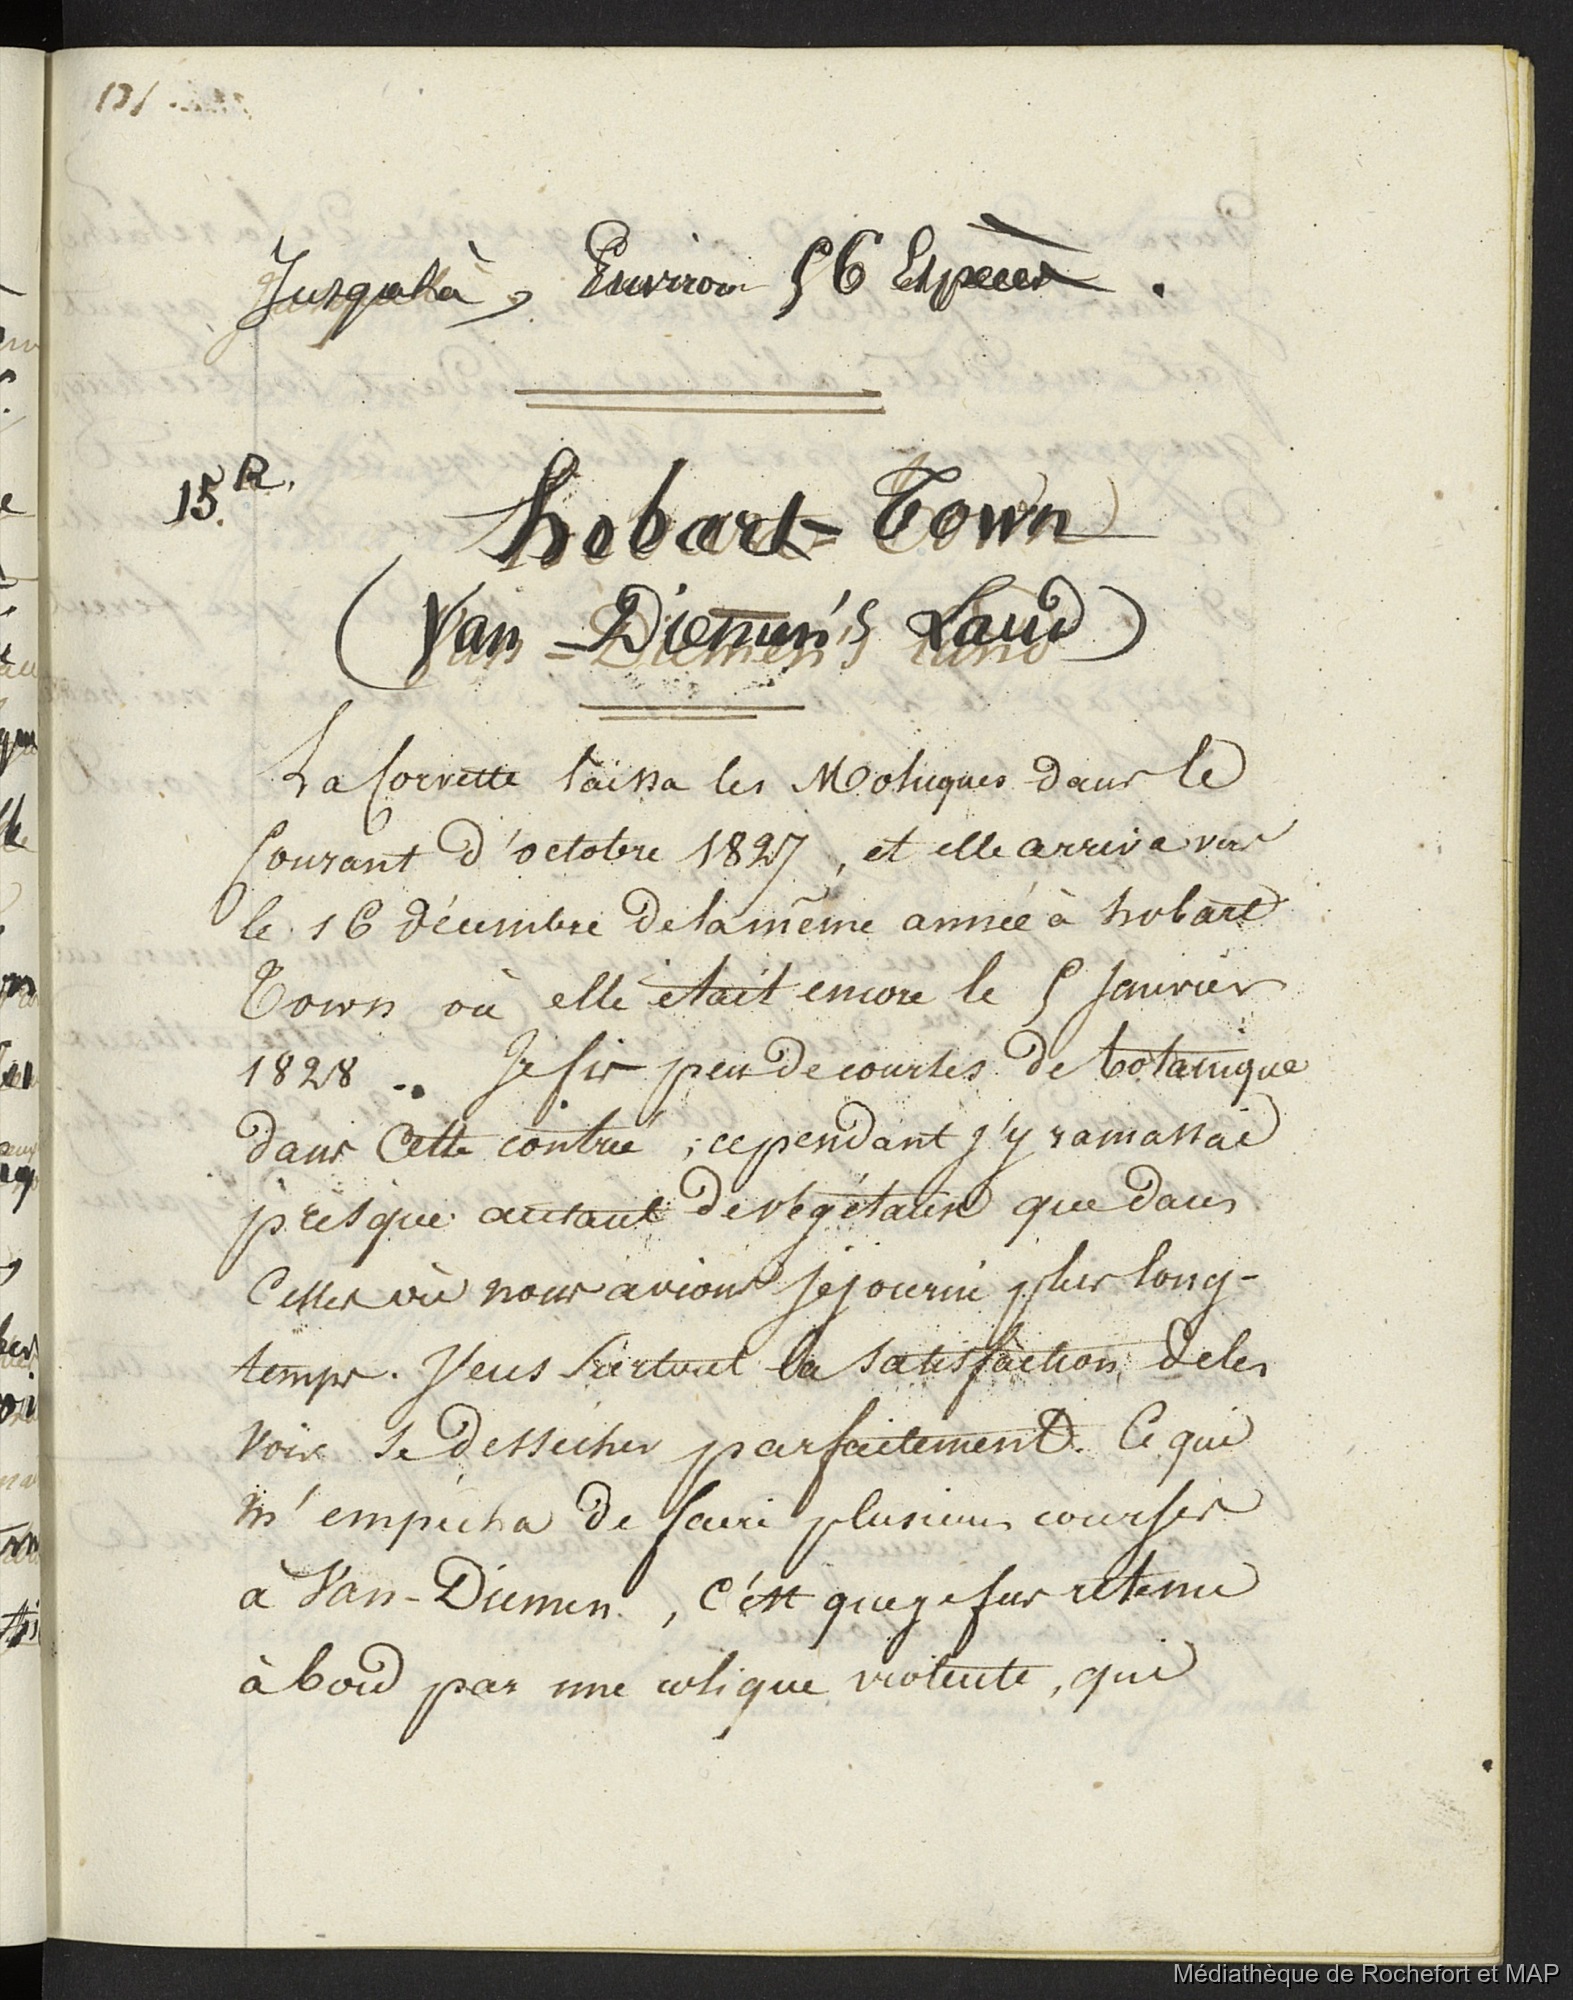 131.
Jusqu'là, Environ 56 Espèces.
15.R.
hobart-Town
(Van-Diemen's Land)
La Corvette laissa les Moluques dans le
Courant d'octobre 1827, et elle arriva vers
le 16 décembre de la même année à hobart
Town où elle était encore le 5 Janvier
1828 .. Je fis peu de courses de botanique
dans Cette contrée ; cependant j'y ramassai
presque autant de végétaux que dans
Celles où nous avions séjourné plus long-
temps. J'eus Surtout la satisfaction de les
voir se dessécher parfaitement. Ce qui
m'empêcha de faire plusieurs courses
à Van-Diemen, c'est que je fus retenu
à bord par une colique violente, qui
Médiathèque de Rochefort et MAP